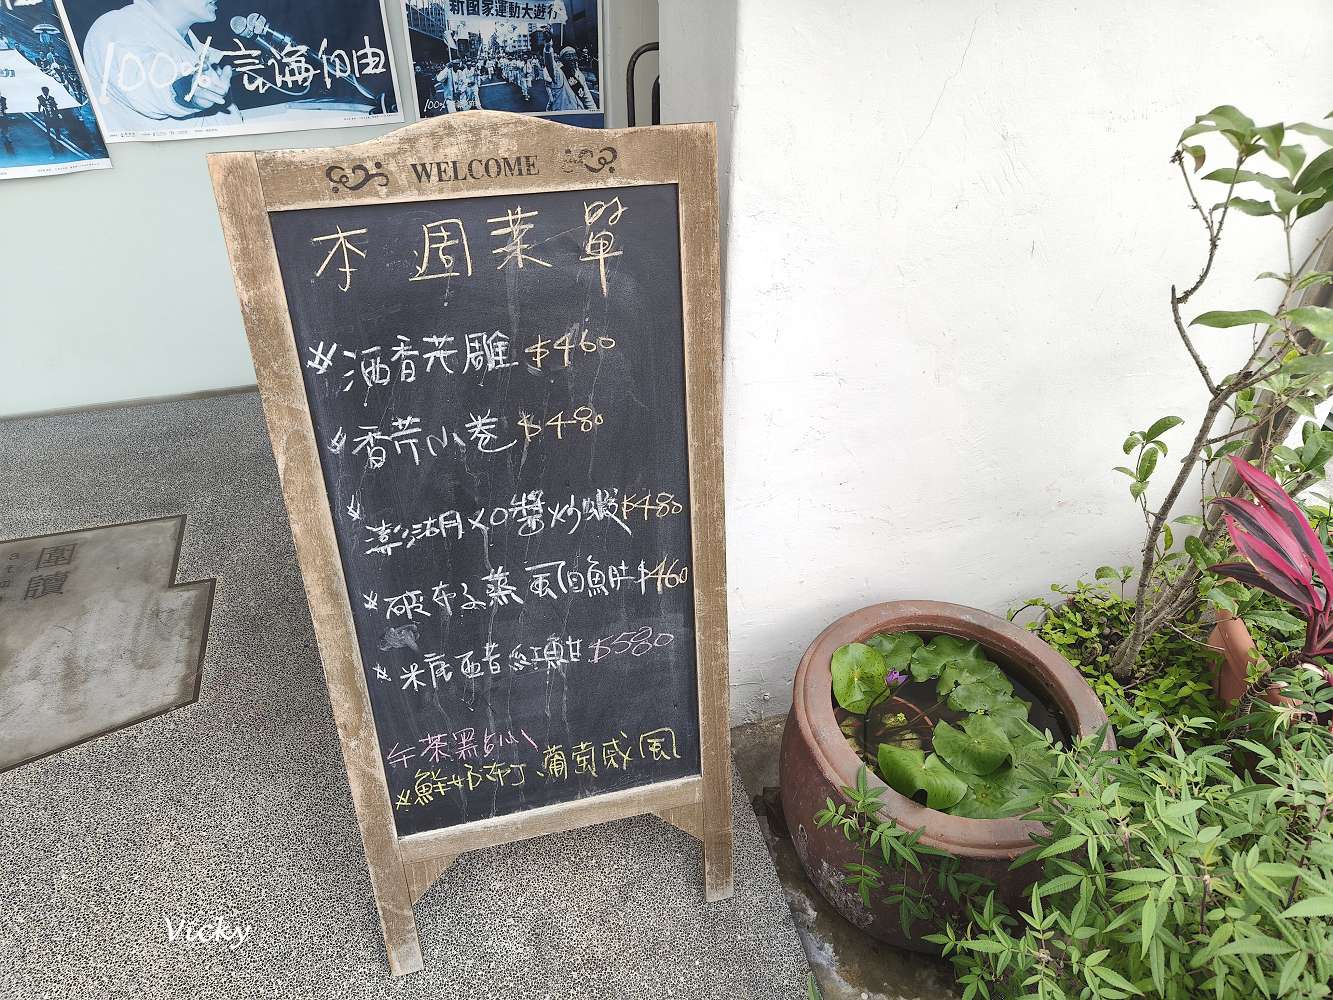 新國家運動大遊行
100%言論自由
100%
WELCOME
本週菜單
酒香花雕 $460
香芹小卷 $480
澎湖月XO醬炒蝦 $480
破布子蒸虱目魚肚 $460
米底酉昔紅魽 $580
午茶點心
鮮奶布丁、葡萄戚風
圍讀
Vicky